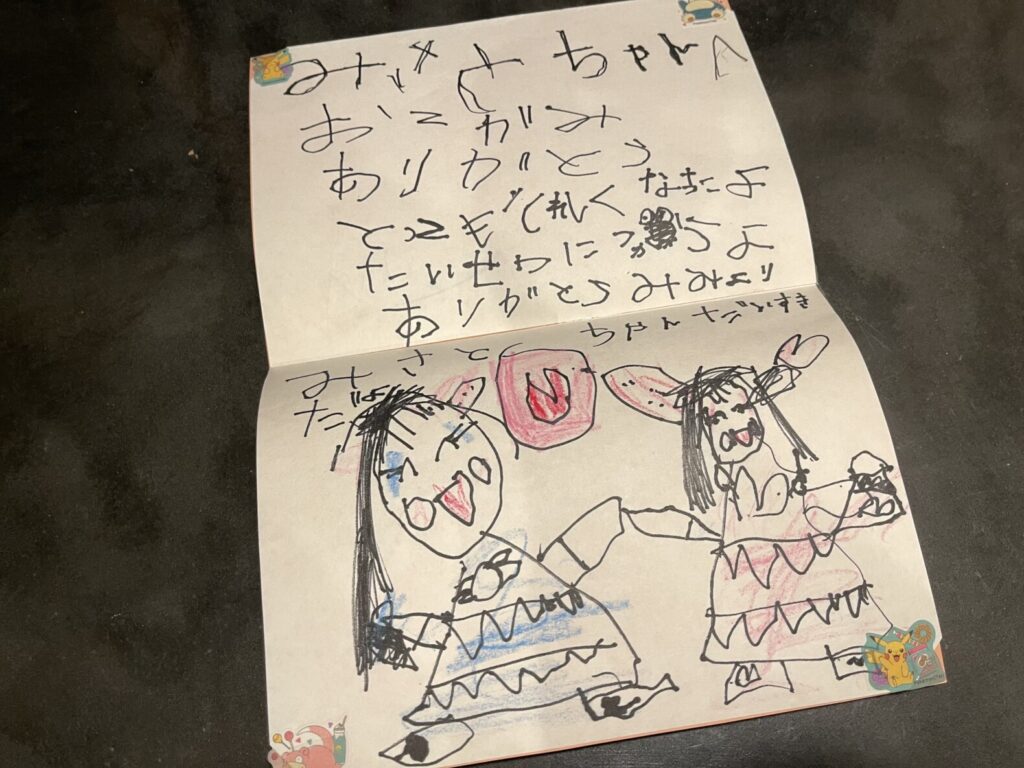 ちゃん
おてがみ
ありがとう
とっても うれしく
たいせつに つかうよ
ありがとう みみより
みさと ちゃんだいすき
だよ